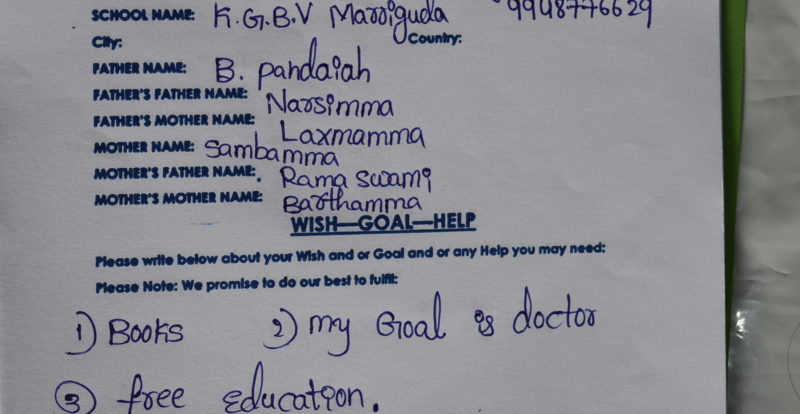 SCHOOL NAME: K.G.B.V Marriguda 9948776629
City: Country:
FATHER NAME: B. pandaiah
FATHER'S FATHER NAME: Narsimma
FATHER'S MOTHER NAME: Laxmamma
MOTHER NAME: Sambamma
MOTHER'S FATHER NAME: Rama swami
MOTHER'S MOTHER NAME: Barthamma
WISH—GOAL—HELP
Please write below about your Wish and or Goal and or any Help you may need:
Please Note: We promise to do our best to fulfil:
1) Books 2) my Goal is doctor
3) free education.